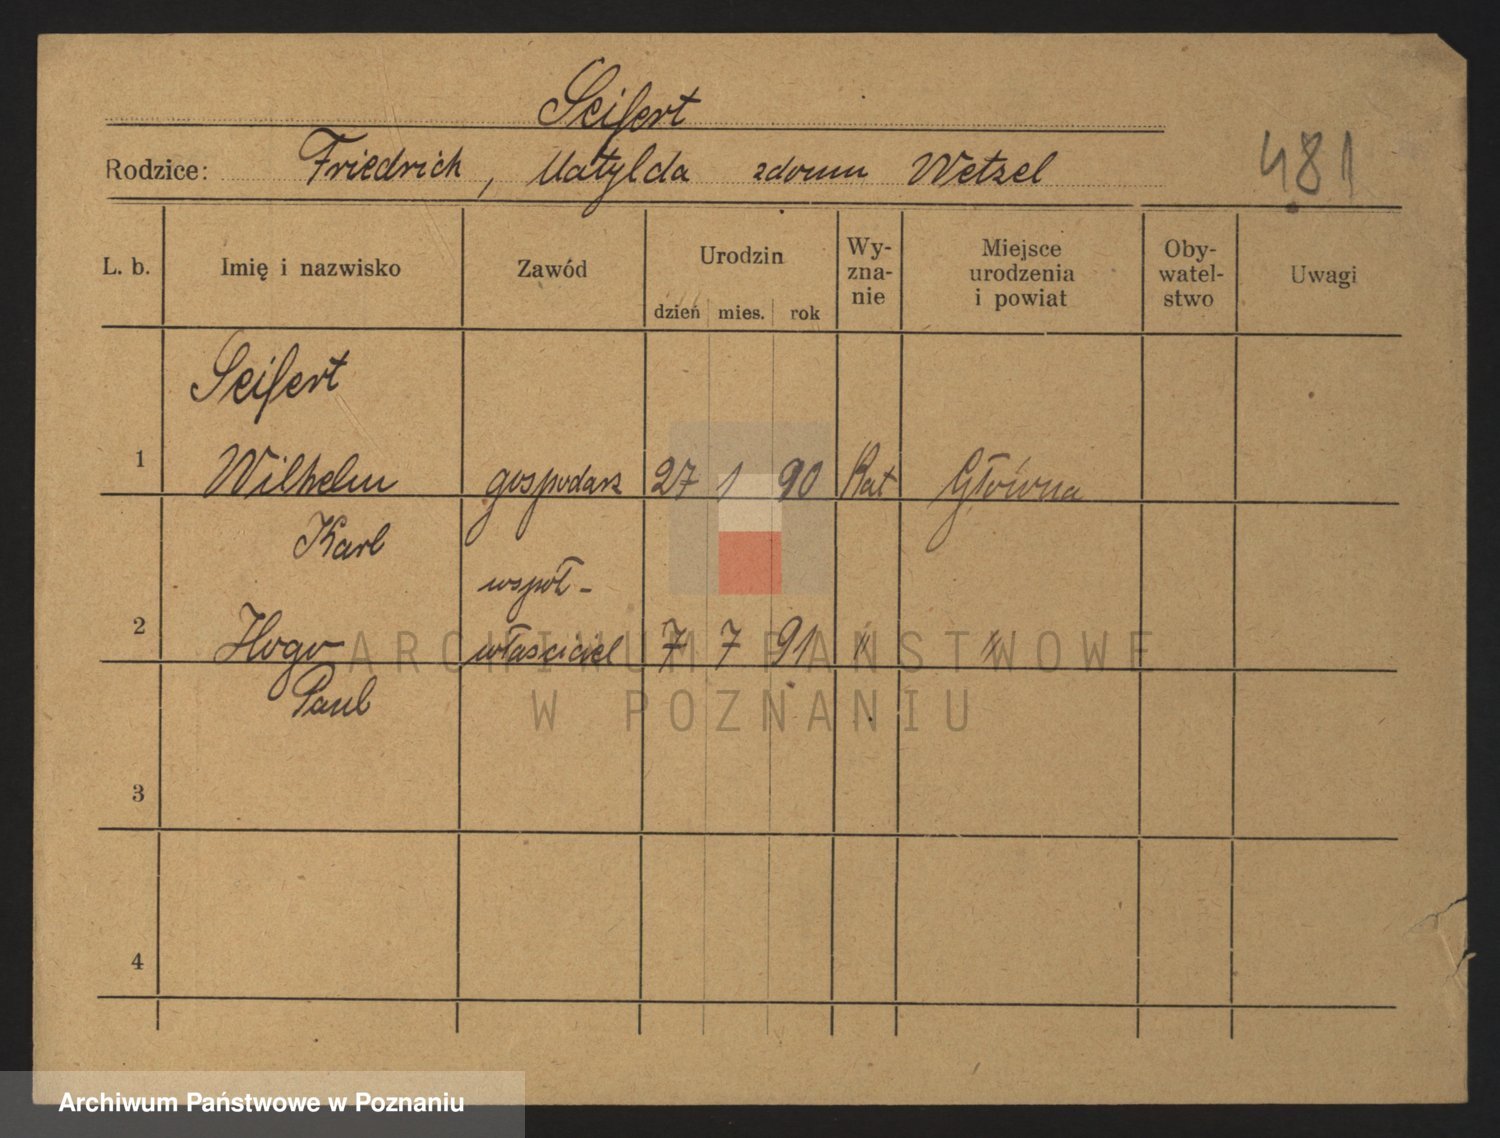 Seifert
Rodzice: Friedrich, Matylda zdomu Wetzel
481
L. b. Imię i nazwisko Zawód Urodzin dzień mies. rok Wy-zna-nie Miejsce urodzenia i powiat Oby-watel-stwo Uwagi
Seifert
1 Wilhelm gospodarz 27 1 90 Kat Główna
Karl
współ-
2 Hugo właściciel 7 7 91 " "
Paul
3
4
ARCHIWUM PAŃSTWOWE
W POZNANIU
Archiwum Państwowe w Poznaniu